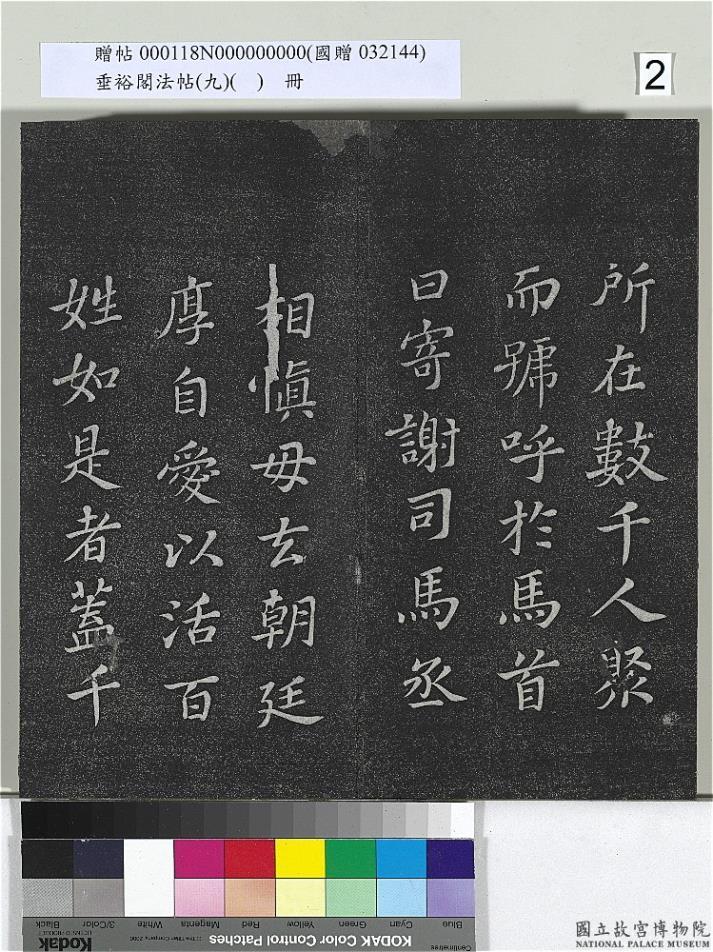 贈帖 000118N000000000(國贈 032144)
垂裕閣法帖(九)( ) 冊
2
所在數千人聚
而號呼於馬首
曰寄謝司馬丞
相慎毋去朝廷
厚自愛以活百
姓如是者蓋千
Blue
Cyan
Green
Yellow
Red
Magenta
White
3/Color
Black
Centimetres
KODAK Color Control Patches
Kodak
國立故宮博物院
NATIONAL PALACE MUSEUM